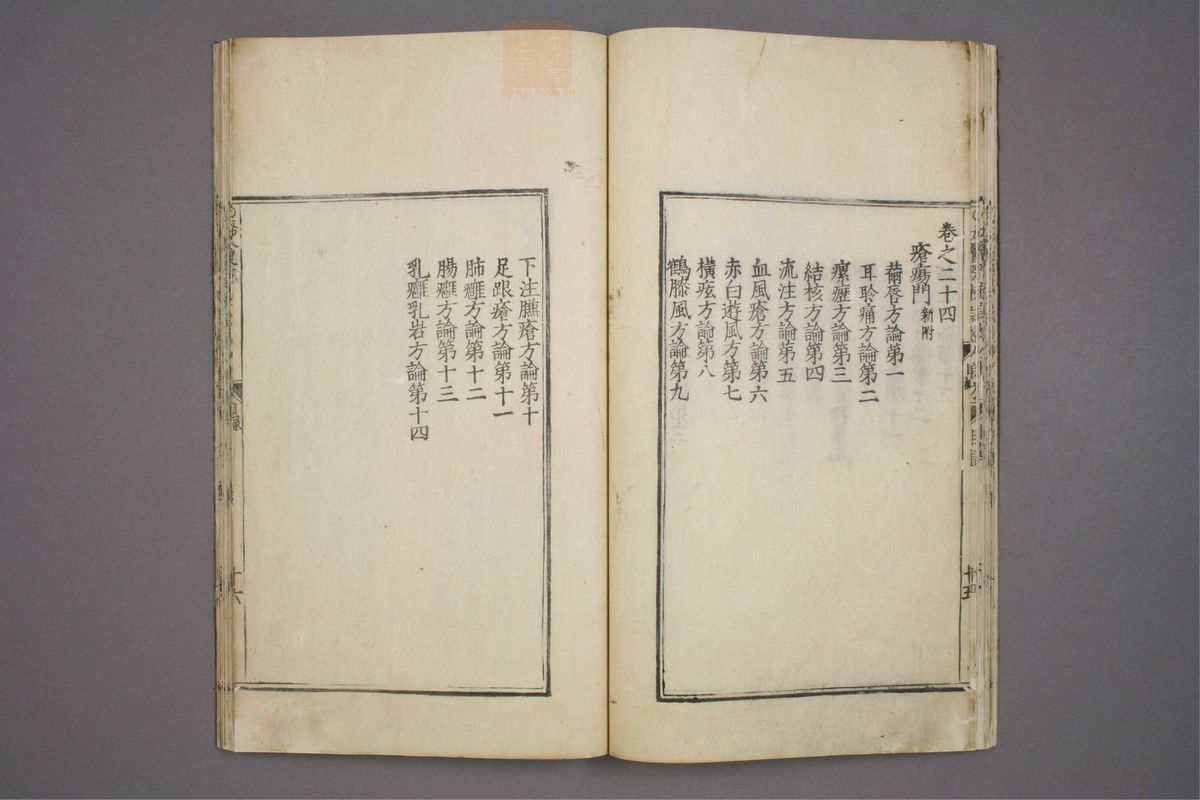 卷之二十四
瘡瘍門 新附
繭唇方論第一
耳聤痛方論第二
瘰癧方論第三
結核方論第四
流注方論第五
血風瘡方論第六
赤白遊風方第七
橫痃方論第八
鶴膝風方論第九
十五
下注臁瘡方論第十
足跟瘡方論第十一
肺癰方論第十二
腸癰方論第十三
乳癰乳岩方論第十四
目錄
十六